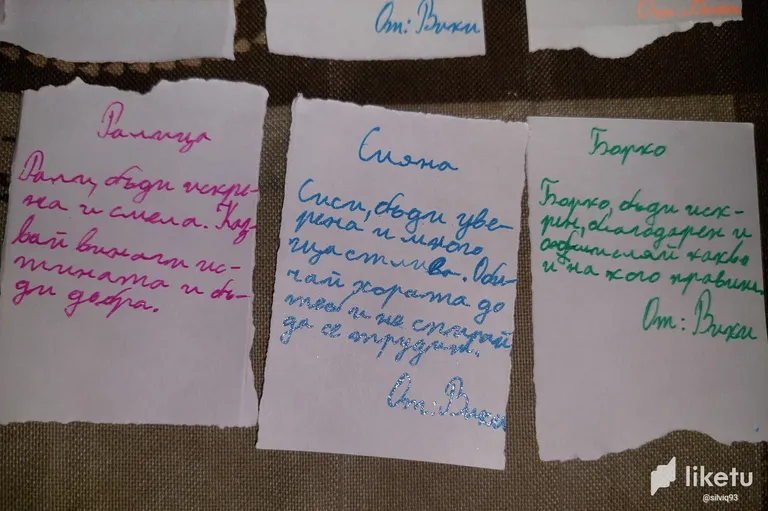 От: Вики
Ралица
Рали, бъди искре-
на и смела. Каз-
вай винаги ис-
тината и бъ-
ди добра.
Сияна
Сиси, бъди уве-
рена и много
щастлива. Оби-
чай хората до
теб и не спирай
да се трудиш.
От: Вики
Борко
Борко, бъди иск-
рен, благодарен и
осмисляй какво
и на кого правиш.
От: Вики
liketu
@silviq93